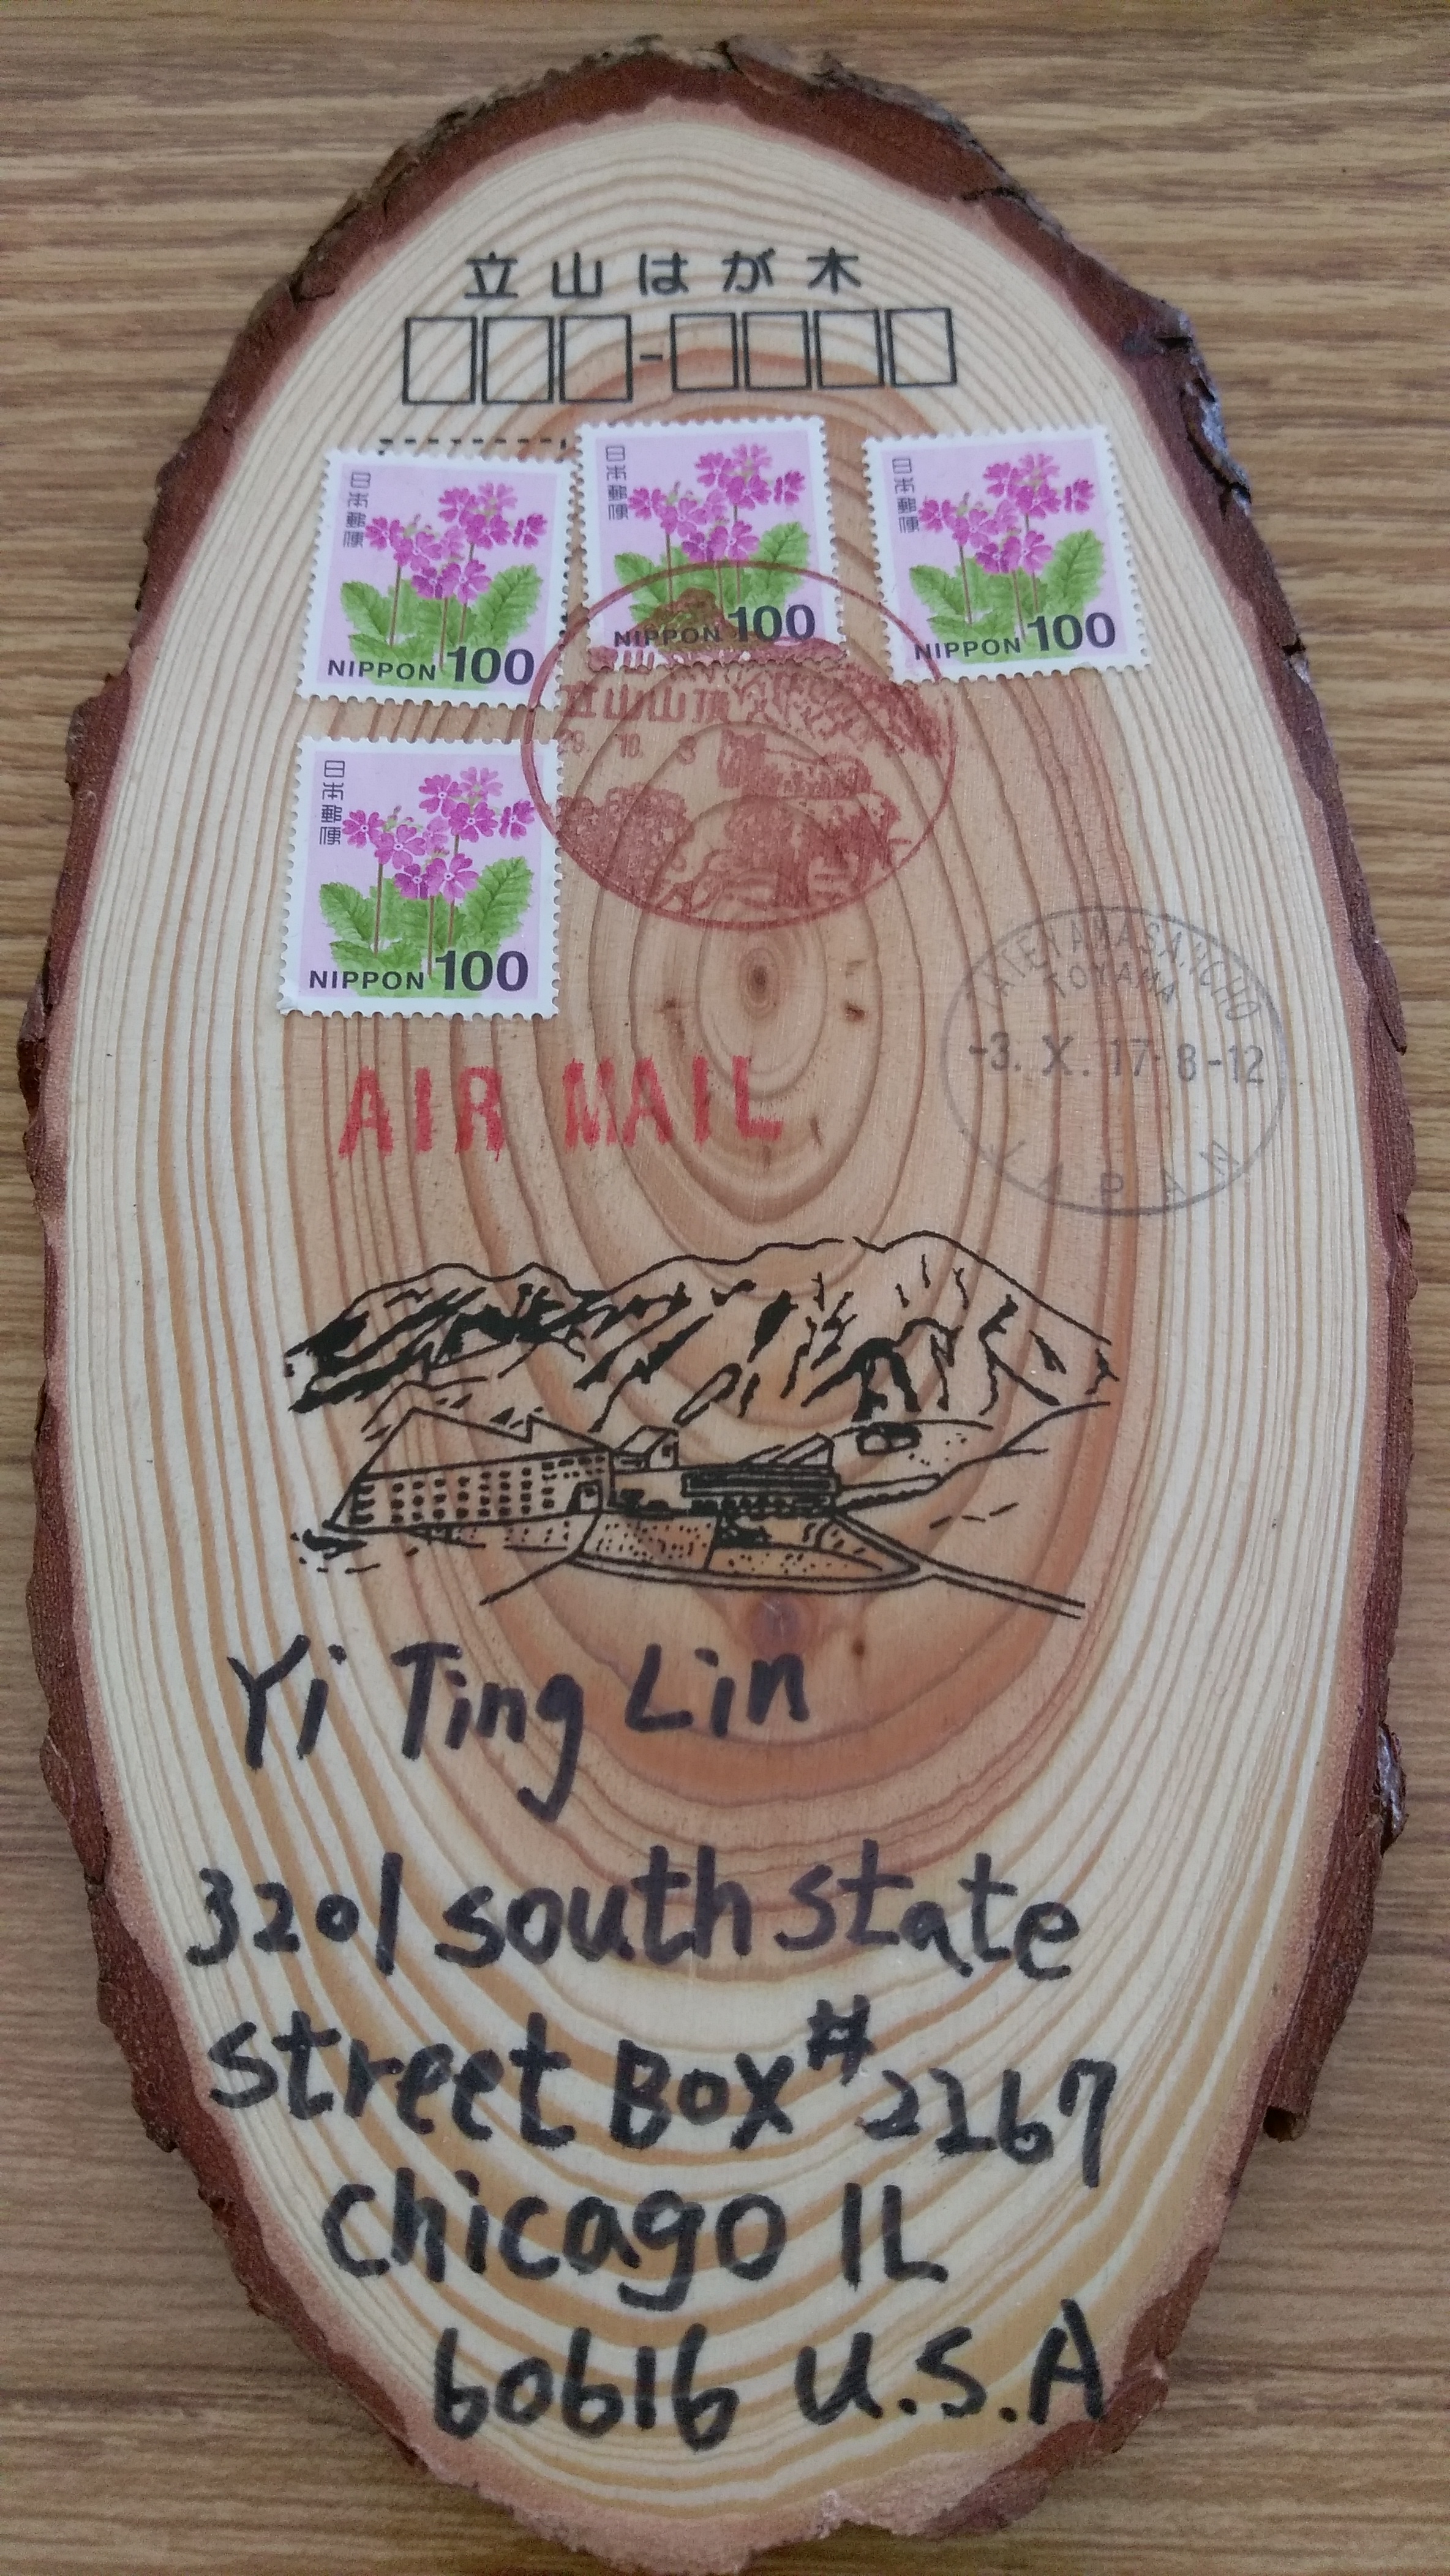 立山はが木
日本郵便
NIPPON 100
日本郵便
NIPPON 100
日本郵便
NIPPON 100
立山山頂
29. 10. 3
日本郵便
NIPPON 100
TOYAMA
-3. X. 17. 8-12
JAPAN
AIR MAIL
Yi Ting Lin
3201 south state
street Box # 2267
chicago IL
60616 U.S.A